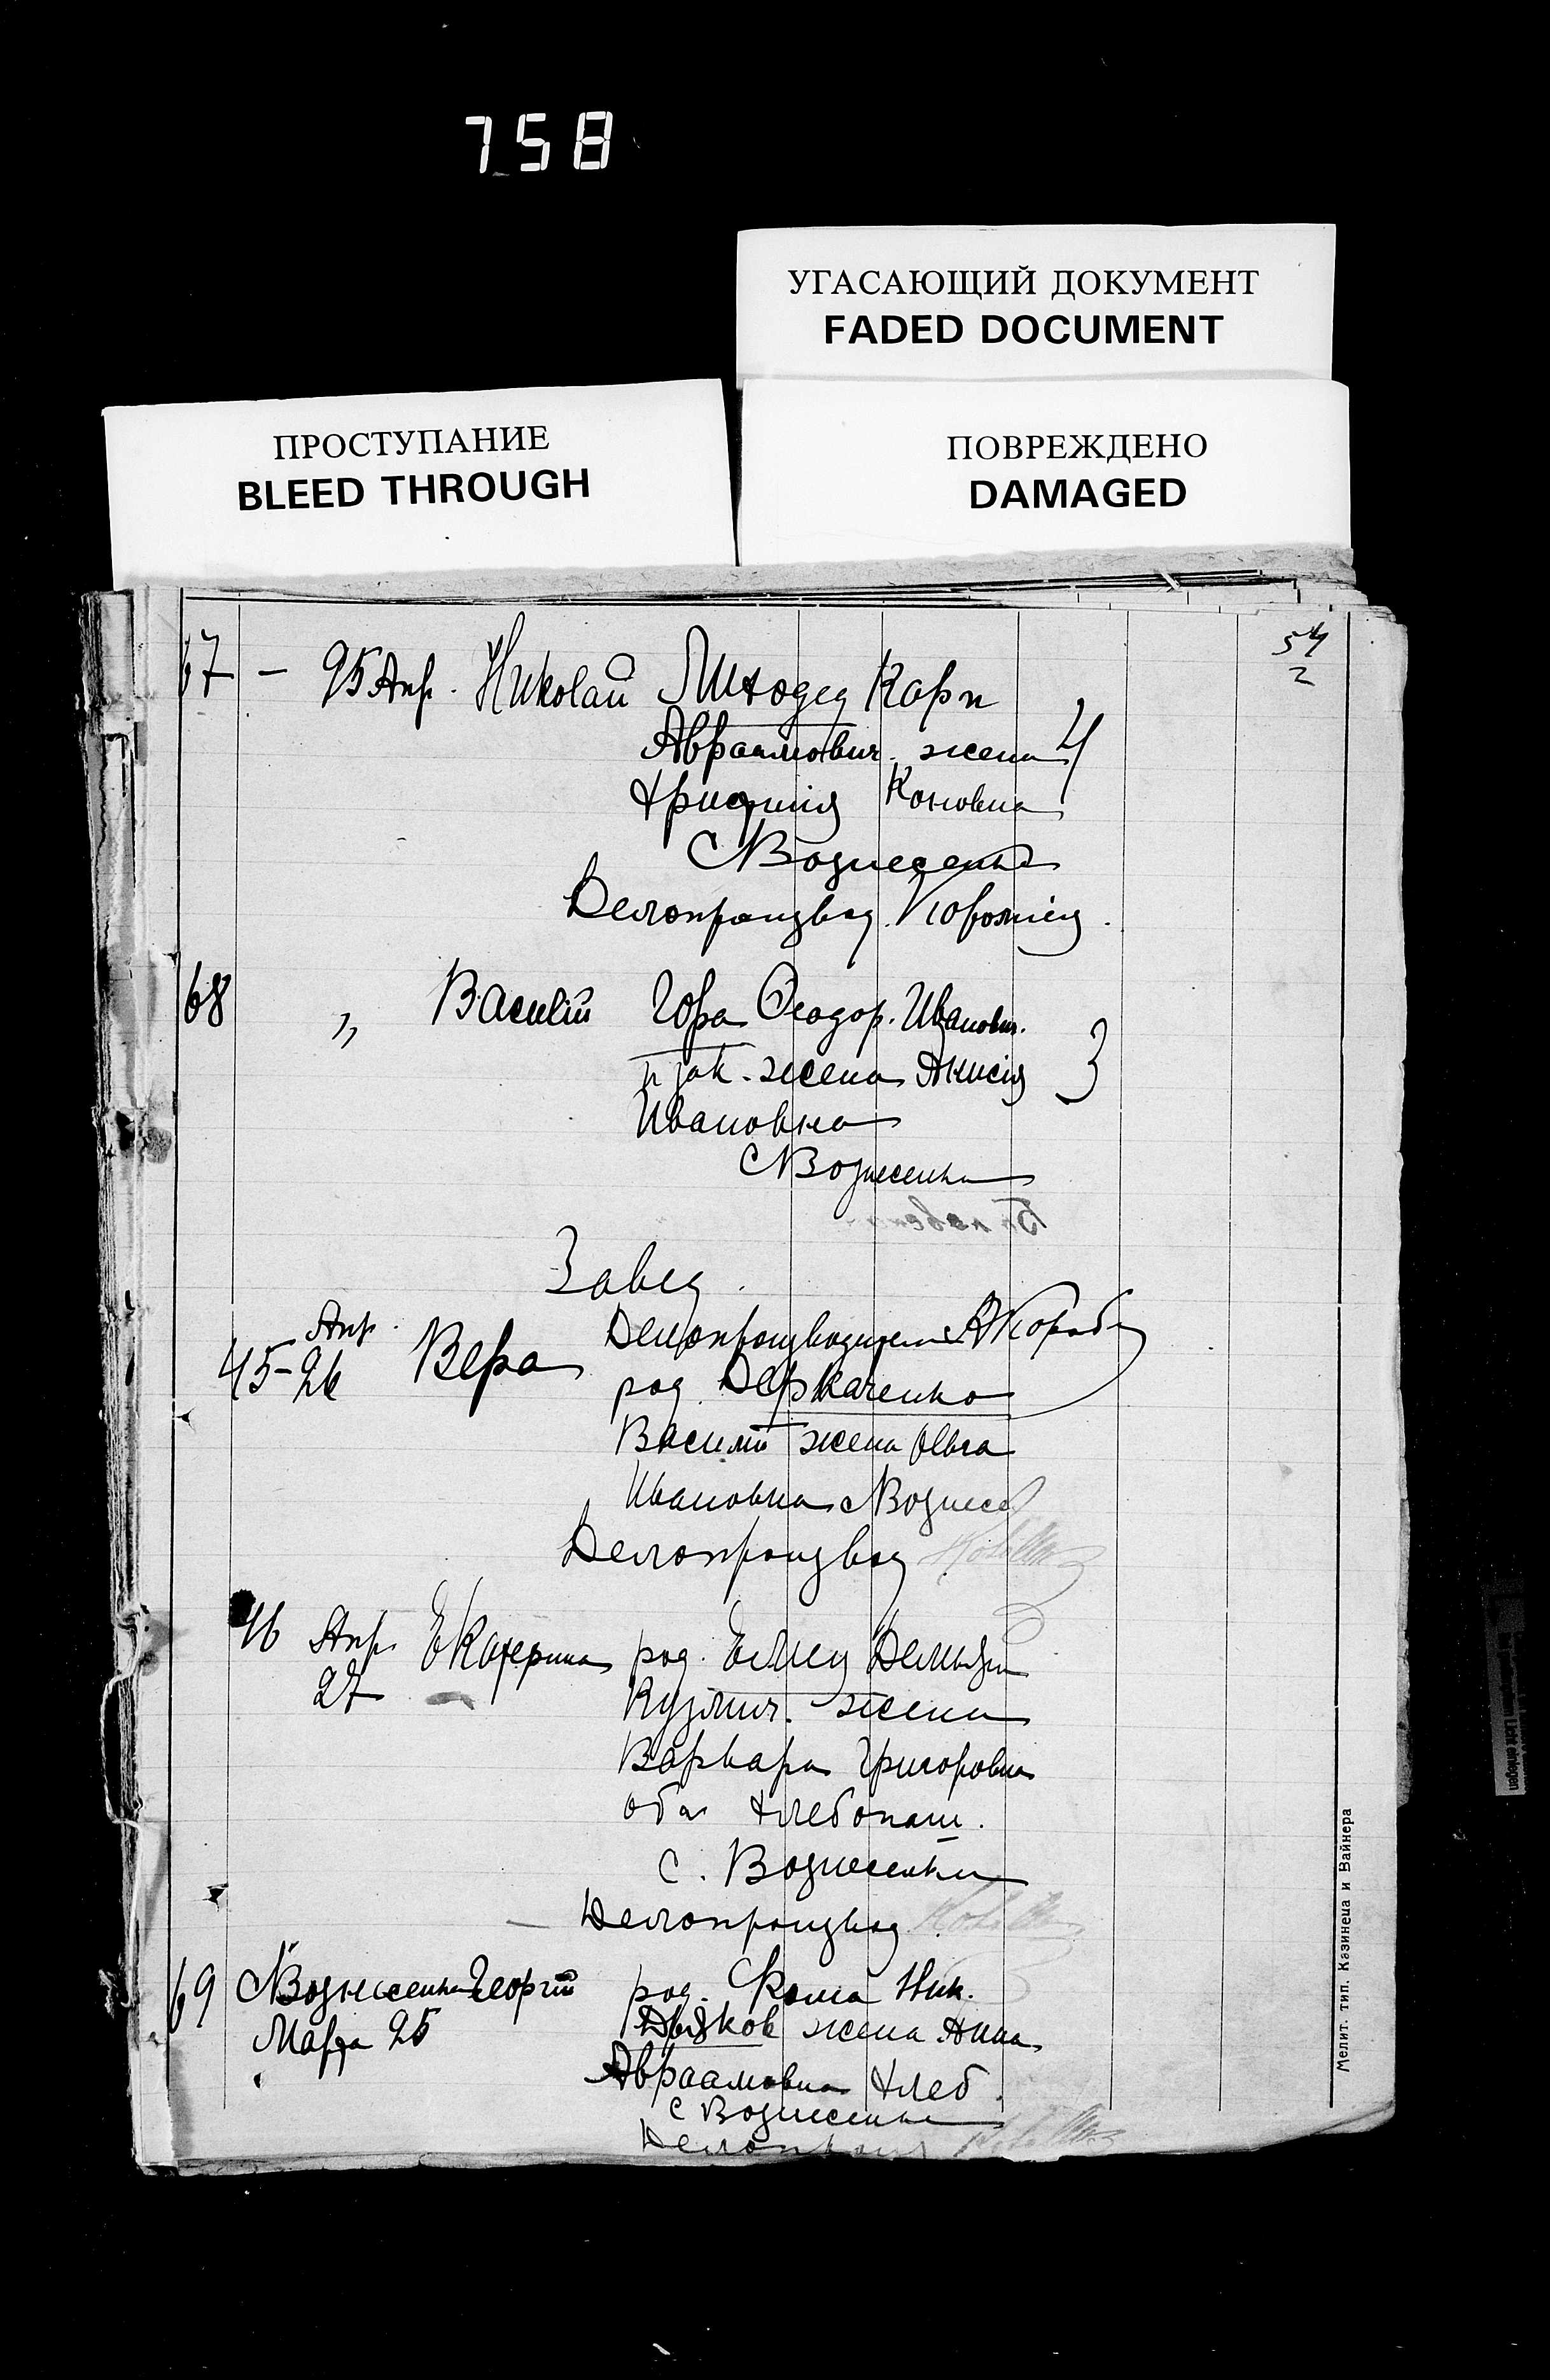 758
УГАСАЮЩИЙ ДОКУМЕНТ
FADED DOCUMENT
ПРОСТУПАНИЕ
BLEED THROUGH
ПОВРЕЖДЕНО
DAMAGED
54
2
67 – 25 Апр. Николай Лиходед Карп
Авраамович. жена 4
Христина Коновна
С Вознесенка
Делопроизвод.
68 „ Василій Гора Феодор. Иванович.
и зак. жена Анисія 3
Ивановна
С Вознесенка
Завед.
Апр. Делопроизводитель
45 – 26 Вера род. Деркаченко
Василій жена Ольга
Ивановна с Вознесен
Делопроизвод
46 Апр. Екатерина род. Емец Демьян
27 Кузмич. жена
Варвара Григоровна
оба хлебопаш.
с. Вознесенки
Делопроизвод
69 С Вознесенка Георгій род. Кома Ник.
Марта 25 Дьяков жена Анна
Авраамовна хлеб.
с Вознесенка
Делопроизв
Мелит. тип. Казинеца и Вайнера